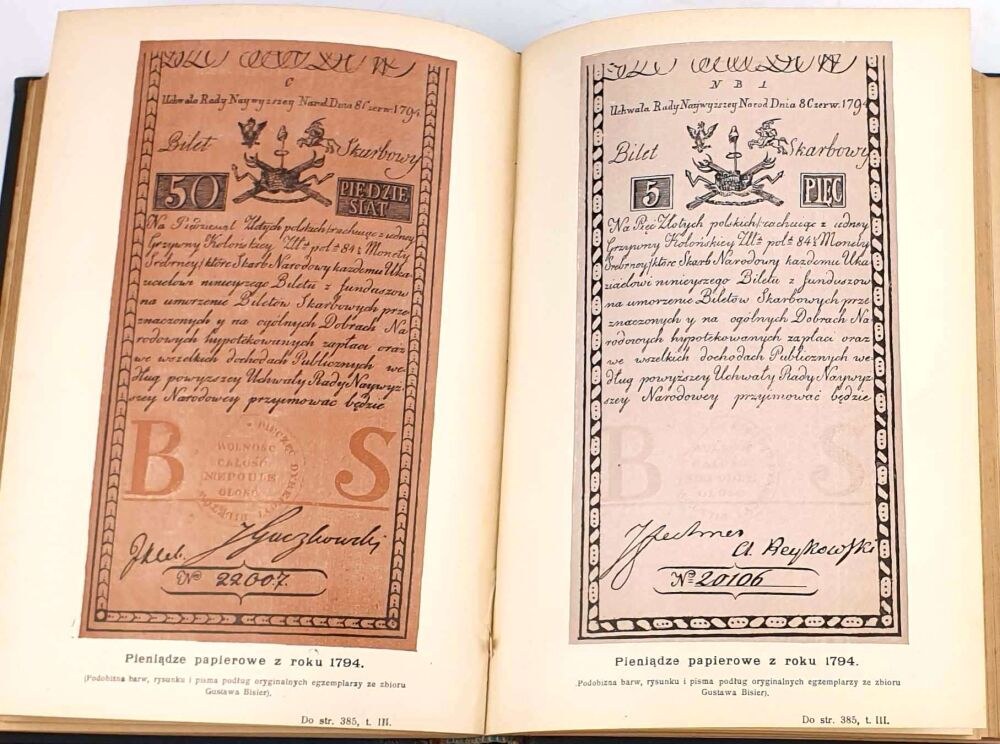 C
Uchwała Rady Naywyzszey Narod. Dnia 8 Czerw. 1794
Bilet Skarbowy
50 PIĘDZIE
SIĄT
Na Pięćdziesiąt Złotych polskich rachuiąc z iedney
Grzywny Kolońskiey Zł. pol. 84½ Monety
Srebrney które Skarb Narodowy kazdemu Uka
zicielowi ninieyszego Biletu z funduszow
na umorzenie Biletów Skarbowych prze
znaczonych y na ogólnych Dobrach Na
rodowych hypotekowanych zapłaci oraz
we wszelkich dochodach Publicznych we
dług powyzszey Uchwały Rady Naywyz
szey Narodowey przyimować będzie
B S
WOLNOŚĆ
CAŁOŚĆ
NIEPODLE
GŁOŚĆ
No 22607.
Pieniądze papierowe z roku 1794.
(Podobizna barw, rysunku i pisma podług oryginalnych egzemplarzy ze zbioru
Gustawa Bisier).
Do str. 385, t. III.
N B 1
Uchwała Rady Naywyzszey Narod Dnia 8 Czerw. 1794
Bilet Skarbowy
5 PIĘC
Na Pięć Złotych polskich rachuiąc z iedney
Grzywny Kolońskiey Zł. pol. 84½ Monety
Srebrney które Skarb Narodowy kazdemu Uka
zicielowi ninieyszego Biletu z funduszow
na umorzenie Biletów Skarbowych prze
znaczonych y na ogólnych Dobrach Na
rodowych hypotekowanych zapłaci oraz
we wszelkich dochodach Publicznych we
dług powyzszey Uchwały Rady Naywyz
szey Narodowey przyimować będzie
B S
A Reykowski
No 20106
Pieniądze papierowe z roku 1794.
(Podobizna barw, rysunku i pisma podług oryginalnych egzemplarzy ze zbioru
Gustawa Bisier).
Do str. 385, t. III.